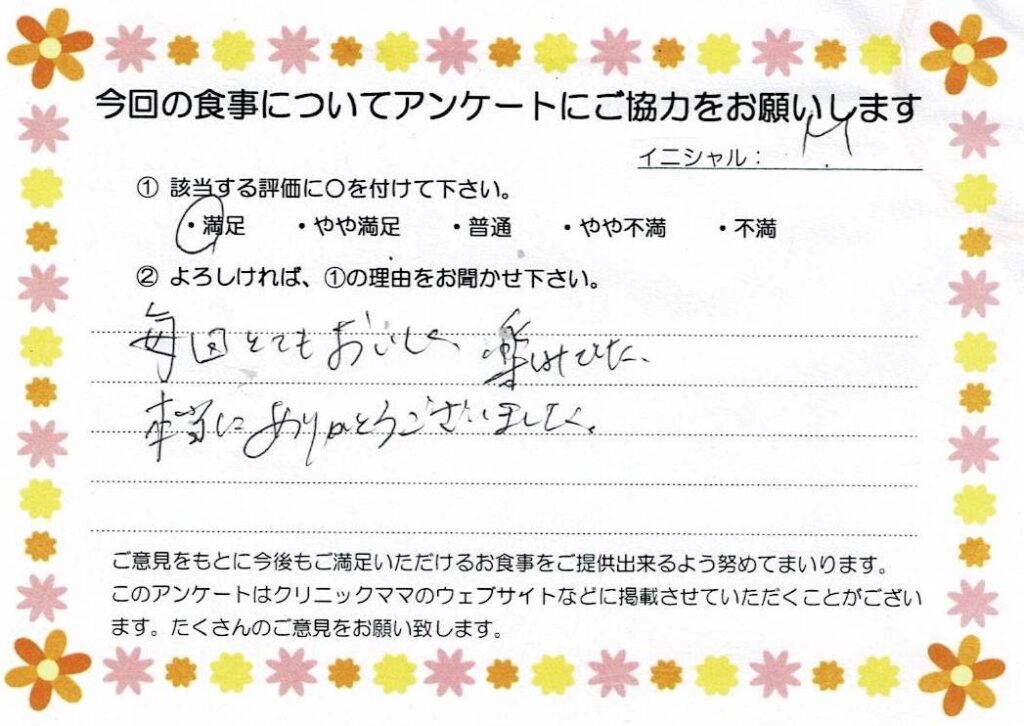 今回の食事についてアンケートにご協力をお願いします
イニシャル： M
① 該当する評価に〇を付けて下さい。
・満足 ・やや満足 ・普通 ・やや不満 ・不満
② よろしければ、①の理由をお聞かせ下さい。
毎回とてもおいしく、楽しみでした。
本当にありがとうございました。
ご意見をもとに今後もご満足いただけるお食事をご提供出来るよう努めてまいります。
このアンケートはクリニックママのウェブサイトなどに掲載させていただくことがござい
ます。たくさんのご意見をお願い致します。